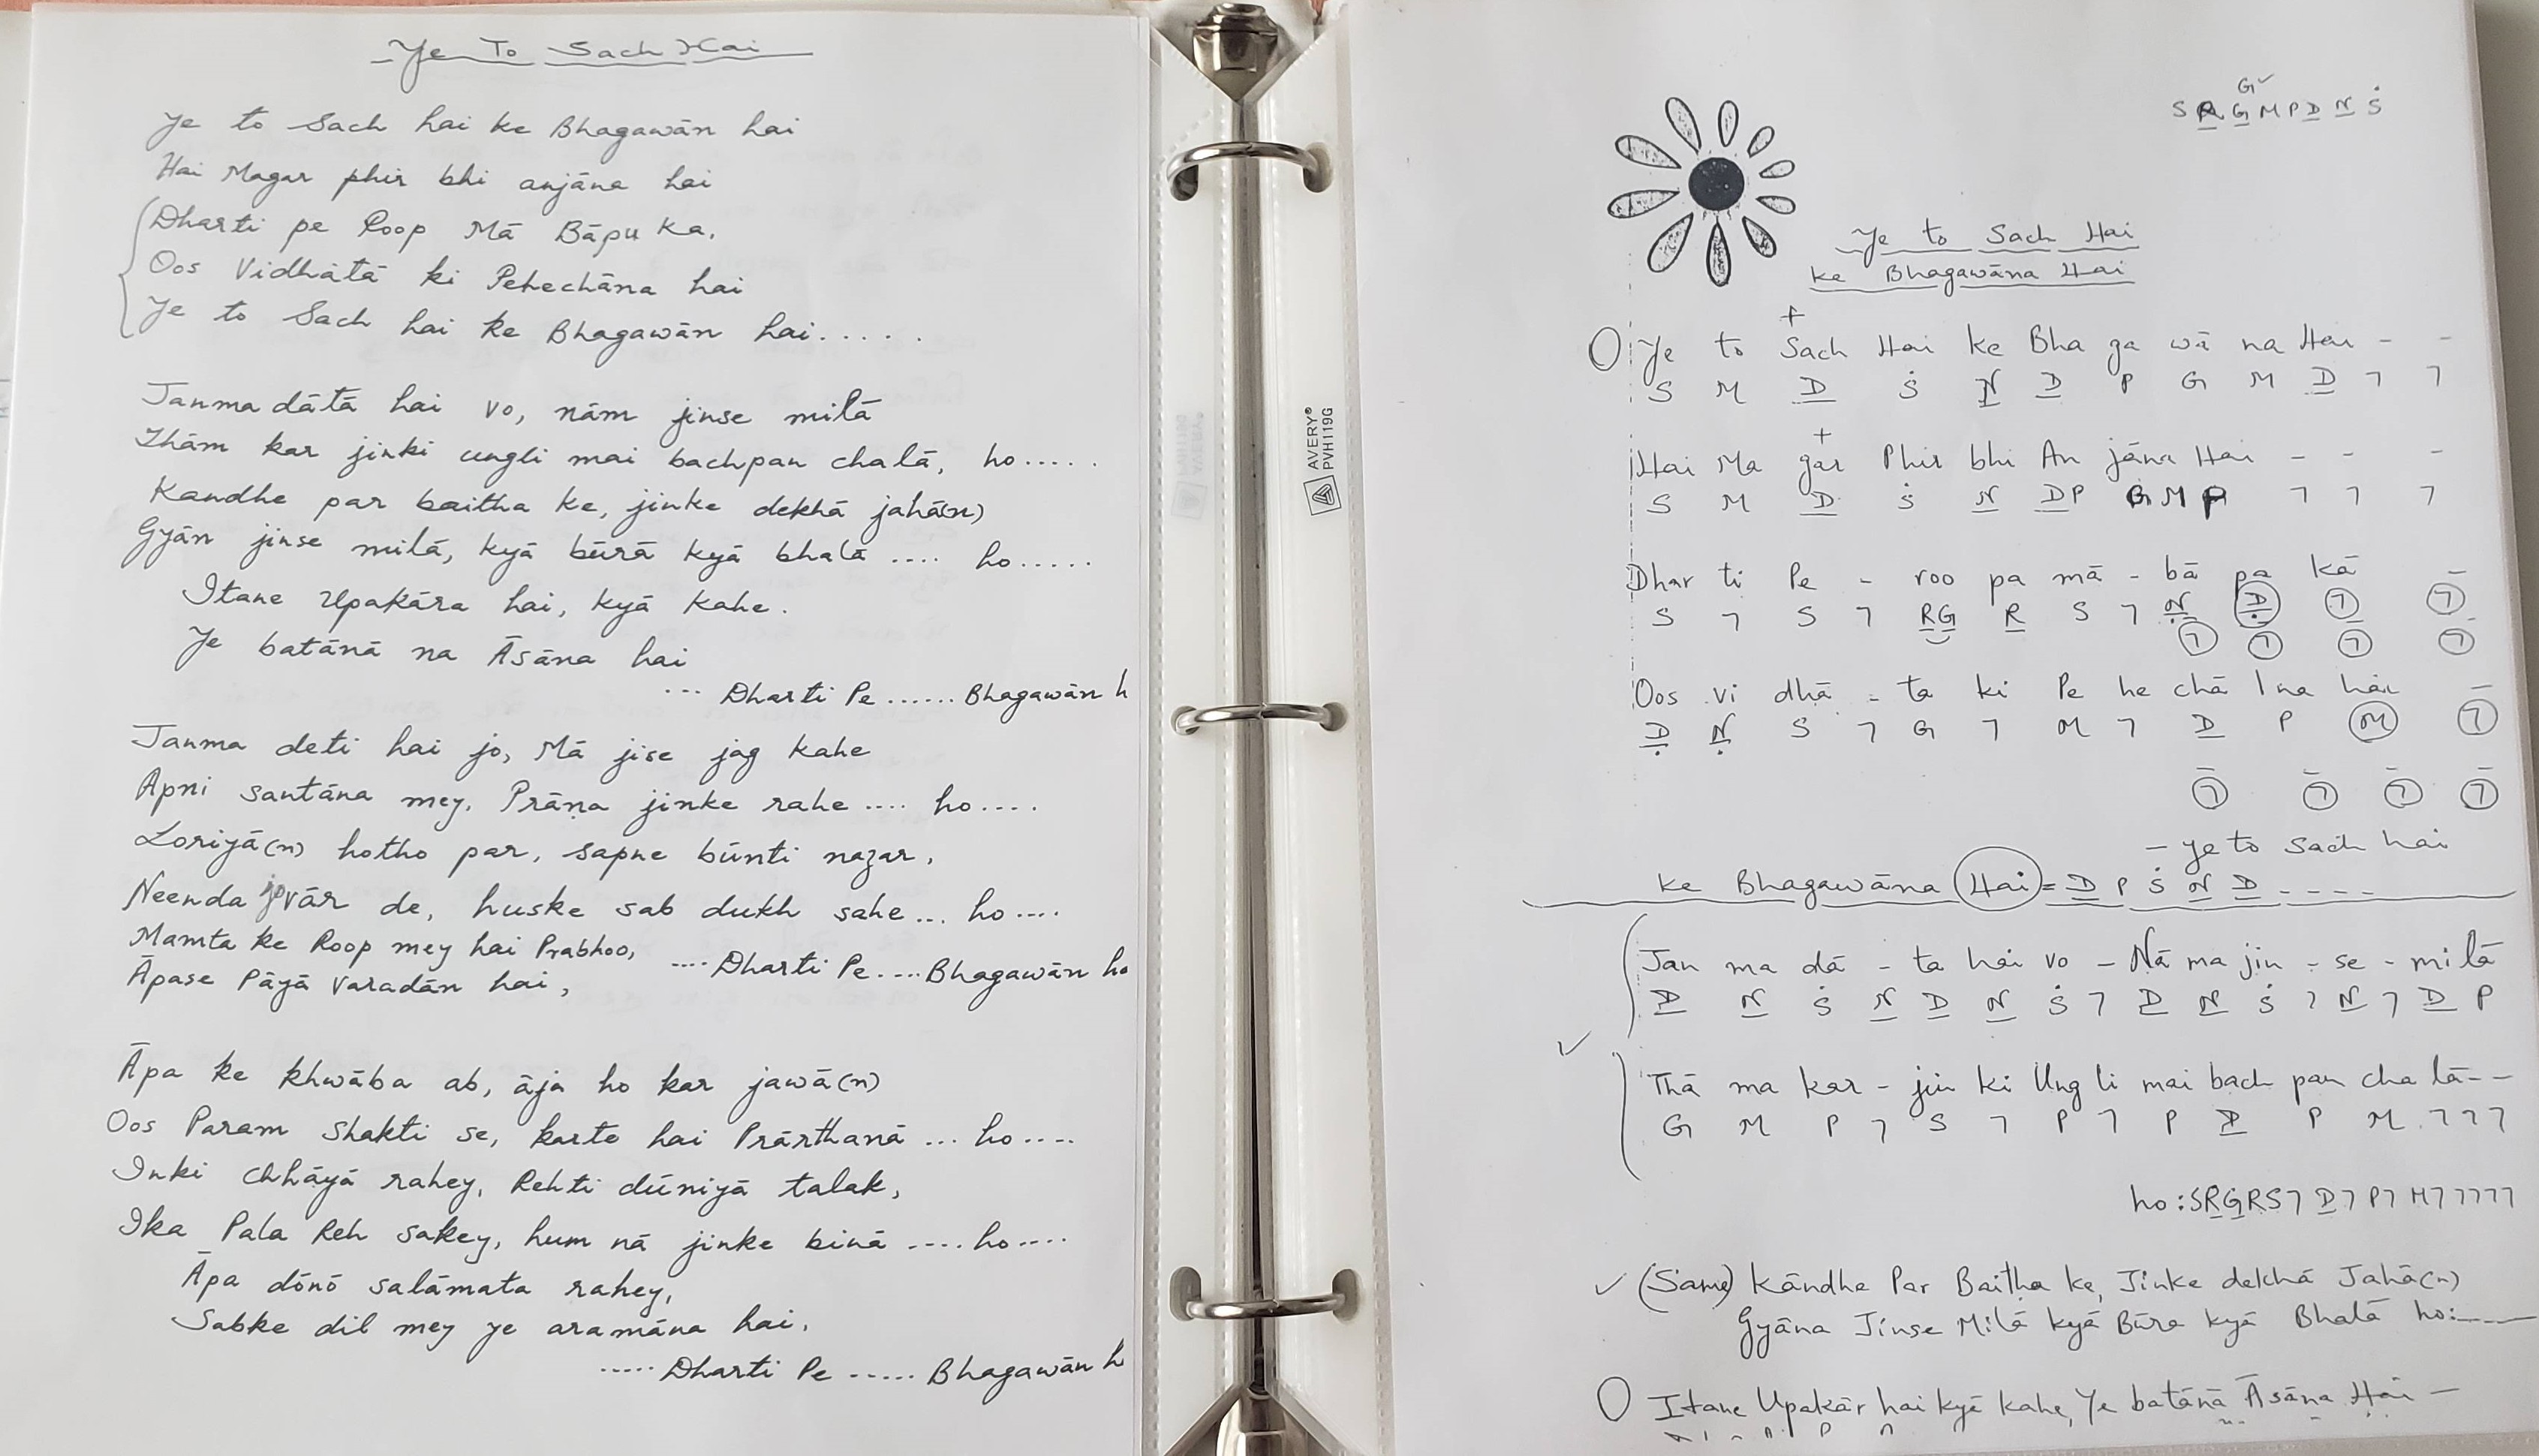 Ye To Sach Hai
Ye to Sach hai ke Bhagawān hai
Hai Magar phir bhi anjāna hai
Dharti pe Roop Mā Bāpu Ka,
Oos Vidhātā ki Pehechāna hai
Ye to Sach hai ke Bhagawān hai.....
Janma dātā hai vo, nām jinse milā
Thām kar jinki ungli mai bachpan chalā, ho.....
Kandhe par baitha ke, jinke dekhā jahā(n)
Gyān jinse milā, kyā būrā kyā bhalā .... ho.....
Itane Upakāra hai, kyā kahe.
Ye batānā na Āsāna hai
... Dharti Pe ...... Bhagawān h
Janma deti hai jo, Mā jise jag kahe
Apni santāna mey, Prāṇa jinke rahe .... ho....
Loriyā(n) hotho par, sapne būnti nazar,
Neenda vār de, huske sab dukh sahe ... ho....
Mamta ke Roop mey hai Prabhoo,
.... Dharti Pe .... Bhagawān ho
Āpase Pāyā Varadān hai,
Āpa ke khwāba ab, āja ho kar jawā(n)
Oos Param Shakti se, karte hai Prārthanā ... ho....
Inki Chhāyā rahey, Rehti dūniyā talak,
Ika Pala Reh sakey, hum nā jinke binā .... ho....
Āpa dōnō salāmata rahey,
Sabke dil mey ye aramāna hai,
..... Dharti Pe ..... Bhagawān h
AVERY®
PVH119G
G ✓
S R̲ G̲ M P D̲ N̲ Ṡ
Ye to Sach Hai
ke Bhagawāna Hai
+
Ye to Sach Hai ke Bha ga wā na Hai - -
S M D̲ Ṡ N̲ D̲ P G M D̲ ㄱ ㄱ
+
Hai Ma gar Phir bhi An jāna Hai - - -
S M D̲ Ṡ N̲ D̲P GMP ㄱ ㄱ ㄱ
Dhar ti Pe - roo pa mā - bā pa kā -
S ㄱ S ㄱ R̲G̲ R̲ S ㄱ Ṇ̲ Ḍ̲ ㄱ ㄱ
ㄱ ㄱ ㄱ ㄱ
Oos vi dhā - ta ki Pe he chā na hai -
Ḍ̲ Ṇ̲ S ㄱ G ㄱ M ㄱ D̲ P M ㄱ
- - - -
ㄱ ㄱ ㄱ ㄱ
- ye to sach hai
ke Bhagawāna Hai = D̲ P Ṡ N̲ D̲ - - - -
Jan ma dā - ta hai vo - Nā ma jin - se - milā
D̲ N̲ Ṡ N̲ D̲ N̲ Ṡ ㄱ D̲ N̲ Ṡ ㄱ N̲ ㄱ D̲ P
✓
Thā ma kar - jin ki Ung li mai bach pan cha lā - -
G M P ㄱ S ㄱ P ㄱ P D̲ P M ㄱㄱㄱ
ho : SR̲G̲RSㄱ D̲ㄱ Pㄱ Mㄱㄱㄱㄱㄱ
✓ (Same) Kāndhe Par Baiṭha ke, Jinke dekhā Jahā(n)
Gyāna Jinse Milā kyā Būra kyā Bhalā ho:
Itane Upakār hai kyā kahe, Ye batānā Āsāna Hai -